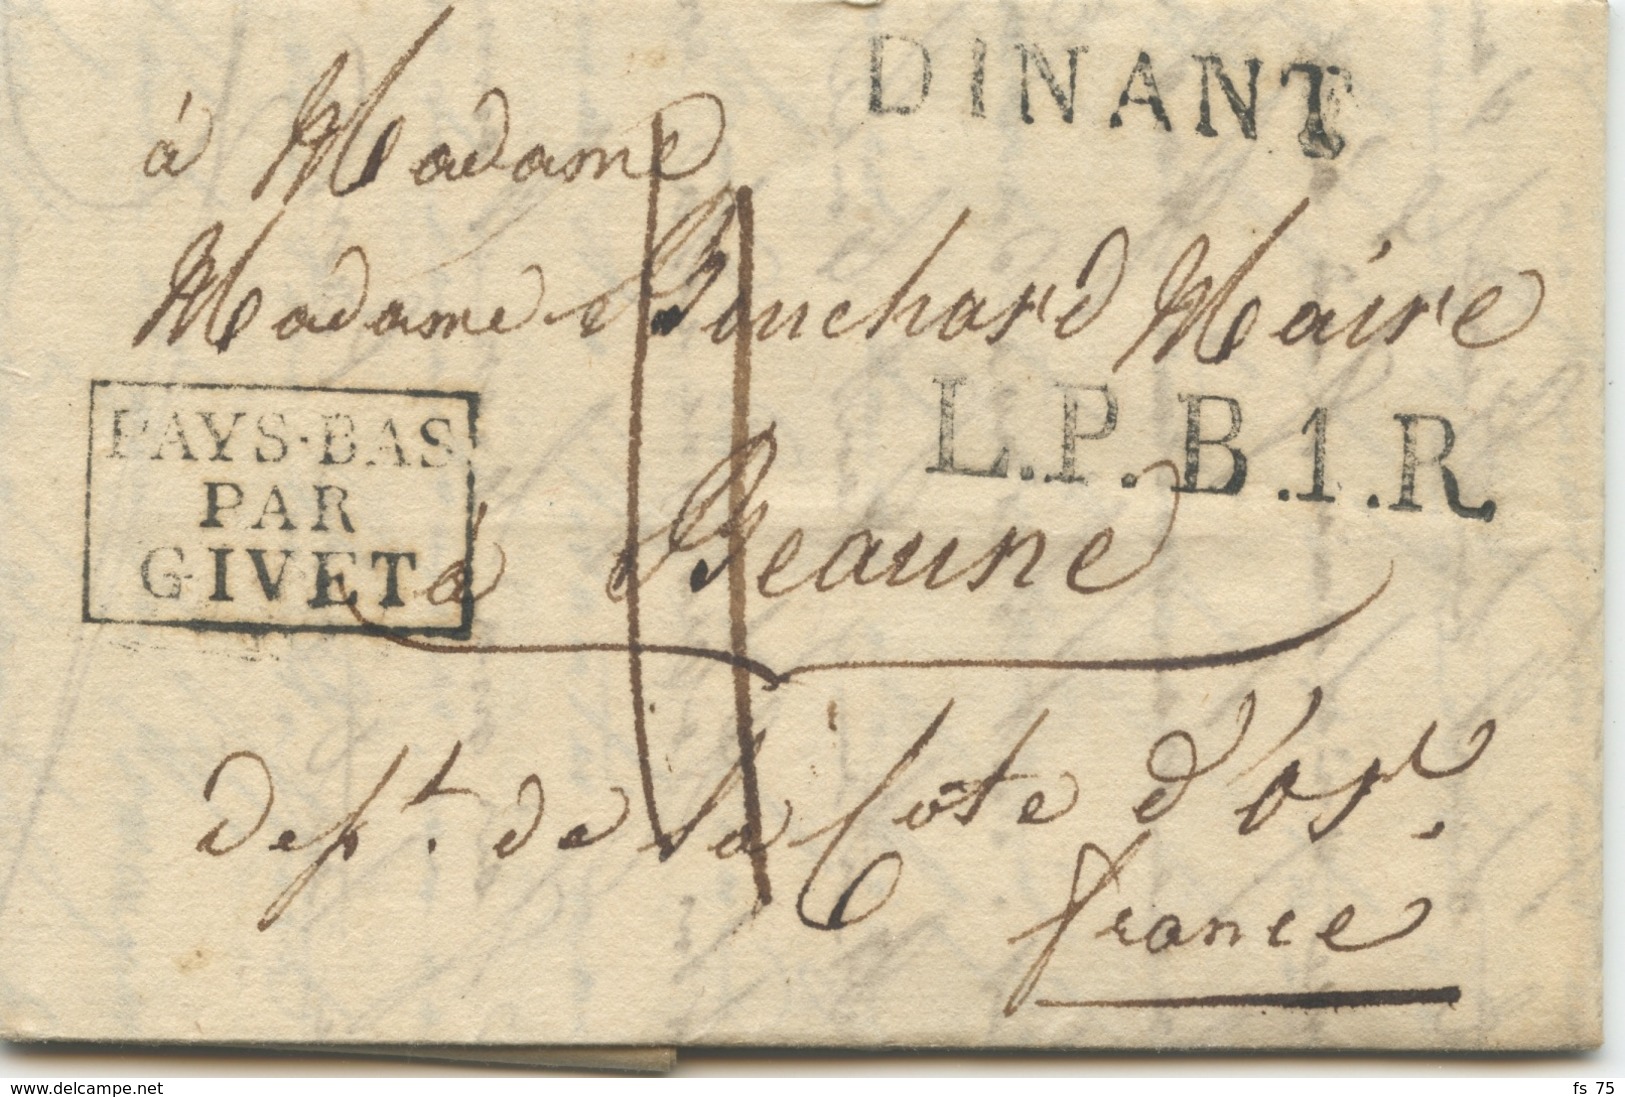 DINANT
à Madame
Madame Bouchard Maire
PAYS-BAS
PAR
GIVET
L.P.B.1.R.
à Beaune
dept. de la Cote d'or.
france
www.delcampe.net
fs 75